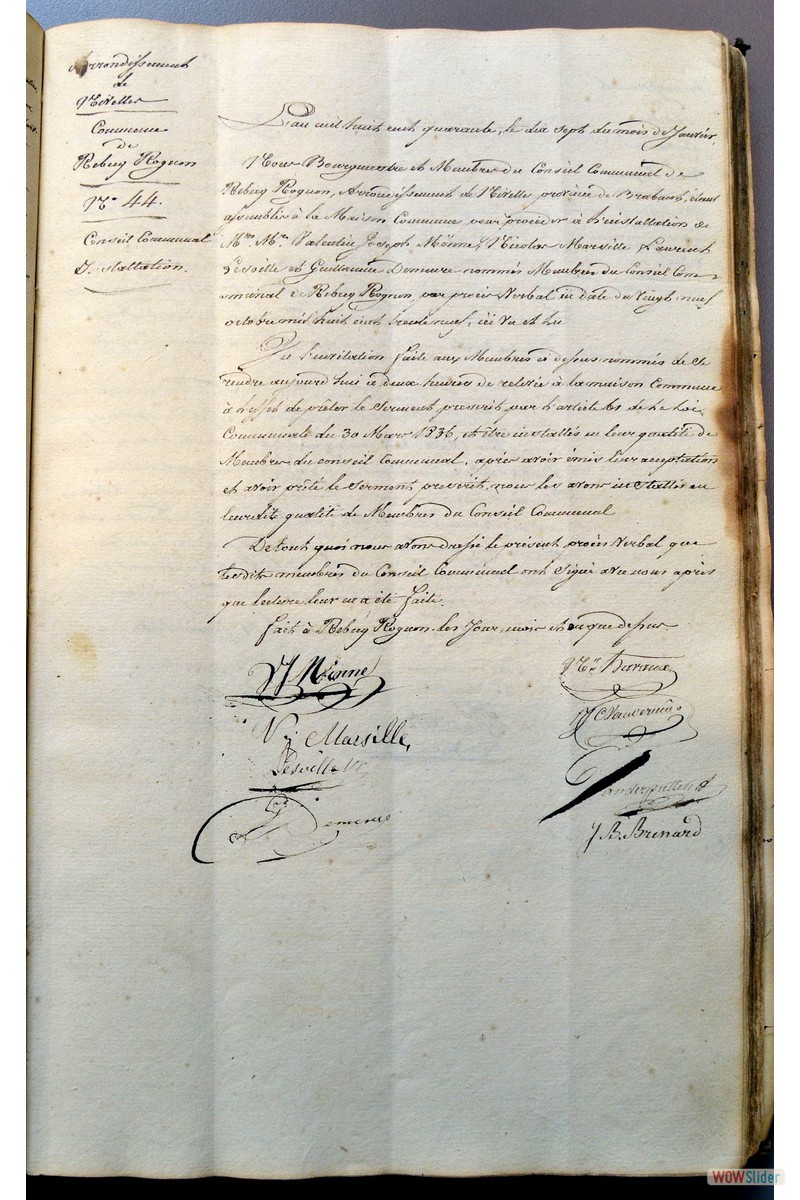 Arrondissement
de
Nivelles
Commune
de
Rebecq Rognon
N° 44.
Conseil Communal
Installation.
L'an mil huit cent quarante, le dix sept du mois de Janvier,
Nous Bourgmestre et Membres du Conseil Communal de
Rebecq Rognon, Arrondissement de Nivelles province de Brabant, étant
assemblés à la Maison Commune pour procéder à l'installation de
M.rs M.rs Valentin Joseph Mönne, Nicolas Marsille Laurent
Lesoille et Guillaume Demeure nommés Membres du Conseil Com-
munal de Rebecq Rognon, par procès Verbal en date du Vingt neuf
octobre mil huit cent trente neuf, ici Vu et Lu
Vu l'invitation faite aux Membres ci dessus nommés de se
rendre aujourd'hui à deux heures de relevée à la maison Commune
à l'effet de prêter le Serment prescrit par l'article 61 de la Loi
Communale du 30 Mars 1836, et être installés en leur qualité de
Membres du conseil Communal, après avoir émis leur acceptation
et avoir prêté le Serment prescrit, nous les avons installés en
leur dite qualité de Membres du Conseil Communal
De tout quoi nous avons dressé le présent procès Verbal que
lesdits membres du Conseil Communal ont Signé avec nous après
que lecture leur en a été faite.
fait à Rebecq Rognon les Jour, mois et an que dessus.
VJ Mönne
N.J Marsille,
Lesoille
Demeure
J B. Brenard
WOWSlider